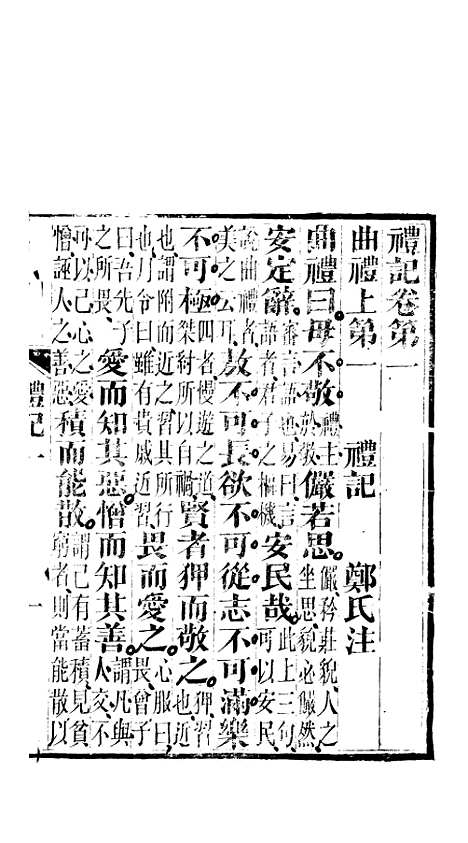 禮記卷第一
曲禮上第一 禮記 鄭氏注
曲禮曰毋不敬。禮主於敬儼若思。儼矜莊貌人之坐思貌必儼然
安定辭。審言語也易曰言語者君子之樞機安民哉。此上三句可以安民
說曲禮者美之云耳敖不可長欲不可從志不可滿樂
不可極。四者慢遊之道桀紂所以自禍賢者狎而敬之。狎習也近
也謂附而近之習其所行也月令曰雖有貴戚近習畏而愛之。心服曰畏曾子
曰吾先子之所畏愛而知其惡憎而知其善。謂凡與人交不
可以己心之愛憎誣人之善惡積而能散。謂己有蓄積見貧窮者則當能散以
禮記一
一